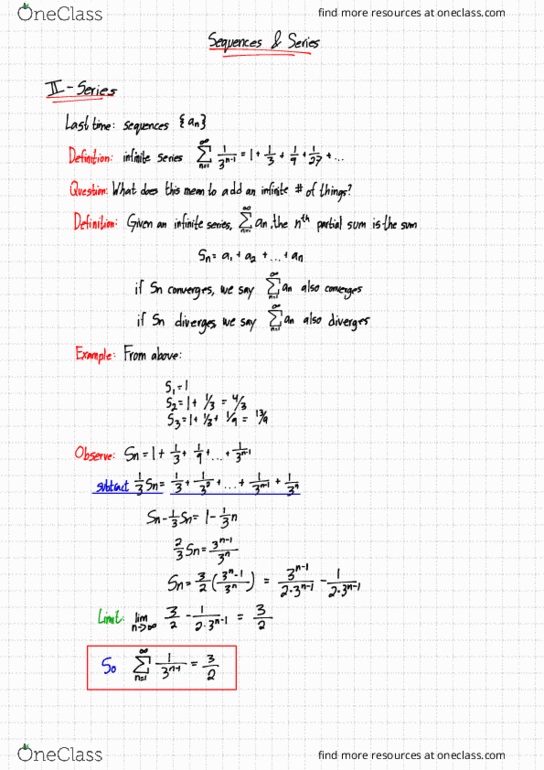 OneClass find more resources at oneclass.com
Sequences & Series
II - Series
Last time: sequences {aₙ}
Definition: infinite series ∑ₙ₌₁^∞ 1/3ⁿ⁻¹ = 1 + 1/3 + 1/9 + 1/27 + ...
Question: What does this mean to add an infinite # of things?
Definition: Given an infinite series, ∑ₙ₌₁^∞ aₙ, the nᵗʰ partial sum is the sum
Sₙ = a₁ + a₂ + ... + aₙ
if Sₙ converges, we say ∑ₙ₌₁^∞ aₙ also converges
if Sₙ diverges we say ∑ₙ₌₁^∞ aₙ also diverges
Example: From above:
S₁ = 1
S₂ = 1 + 1/3 = 4/3
S₃ = 1 + 1/3 + 1/9 = 13/9
Observe: Sₙ = 1 + 1/3 + 1/9 + ... + 1/3ⁿ⁻¹
subtract 1/3 Sₙ = 1/3 + 1/3² + ... + 1/3ⁿ⁻¹ + 1/3ⁿ
Sₙ - 1/3 Sₙ = 1 - 1/3ⁿ
2/3 Sₙ = 3ⁿ⁻¹/3ⁿ
Sₙ = 3/2 (3ⁿ-1/3ⁿ) = 3ⁿ⁻¹/2·3ⁿ⁻¹ - 1/2·3ⁿ⁻¹
Limit: lim n→∞ 3/2 - 1/2·3ⁿ⁻¹ = 3/2
So ∑ₙ₌₁^∞ 1/3ⁿ⁻¹ = 3/2
OneClass find more resources at oneclass.com